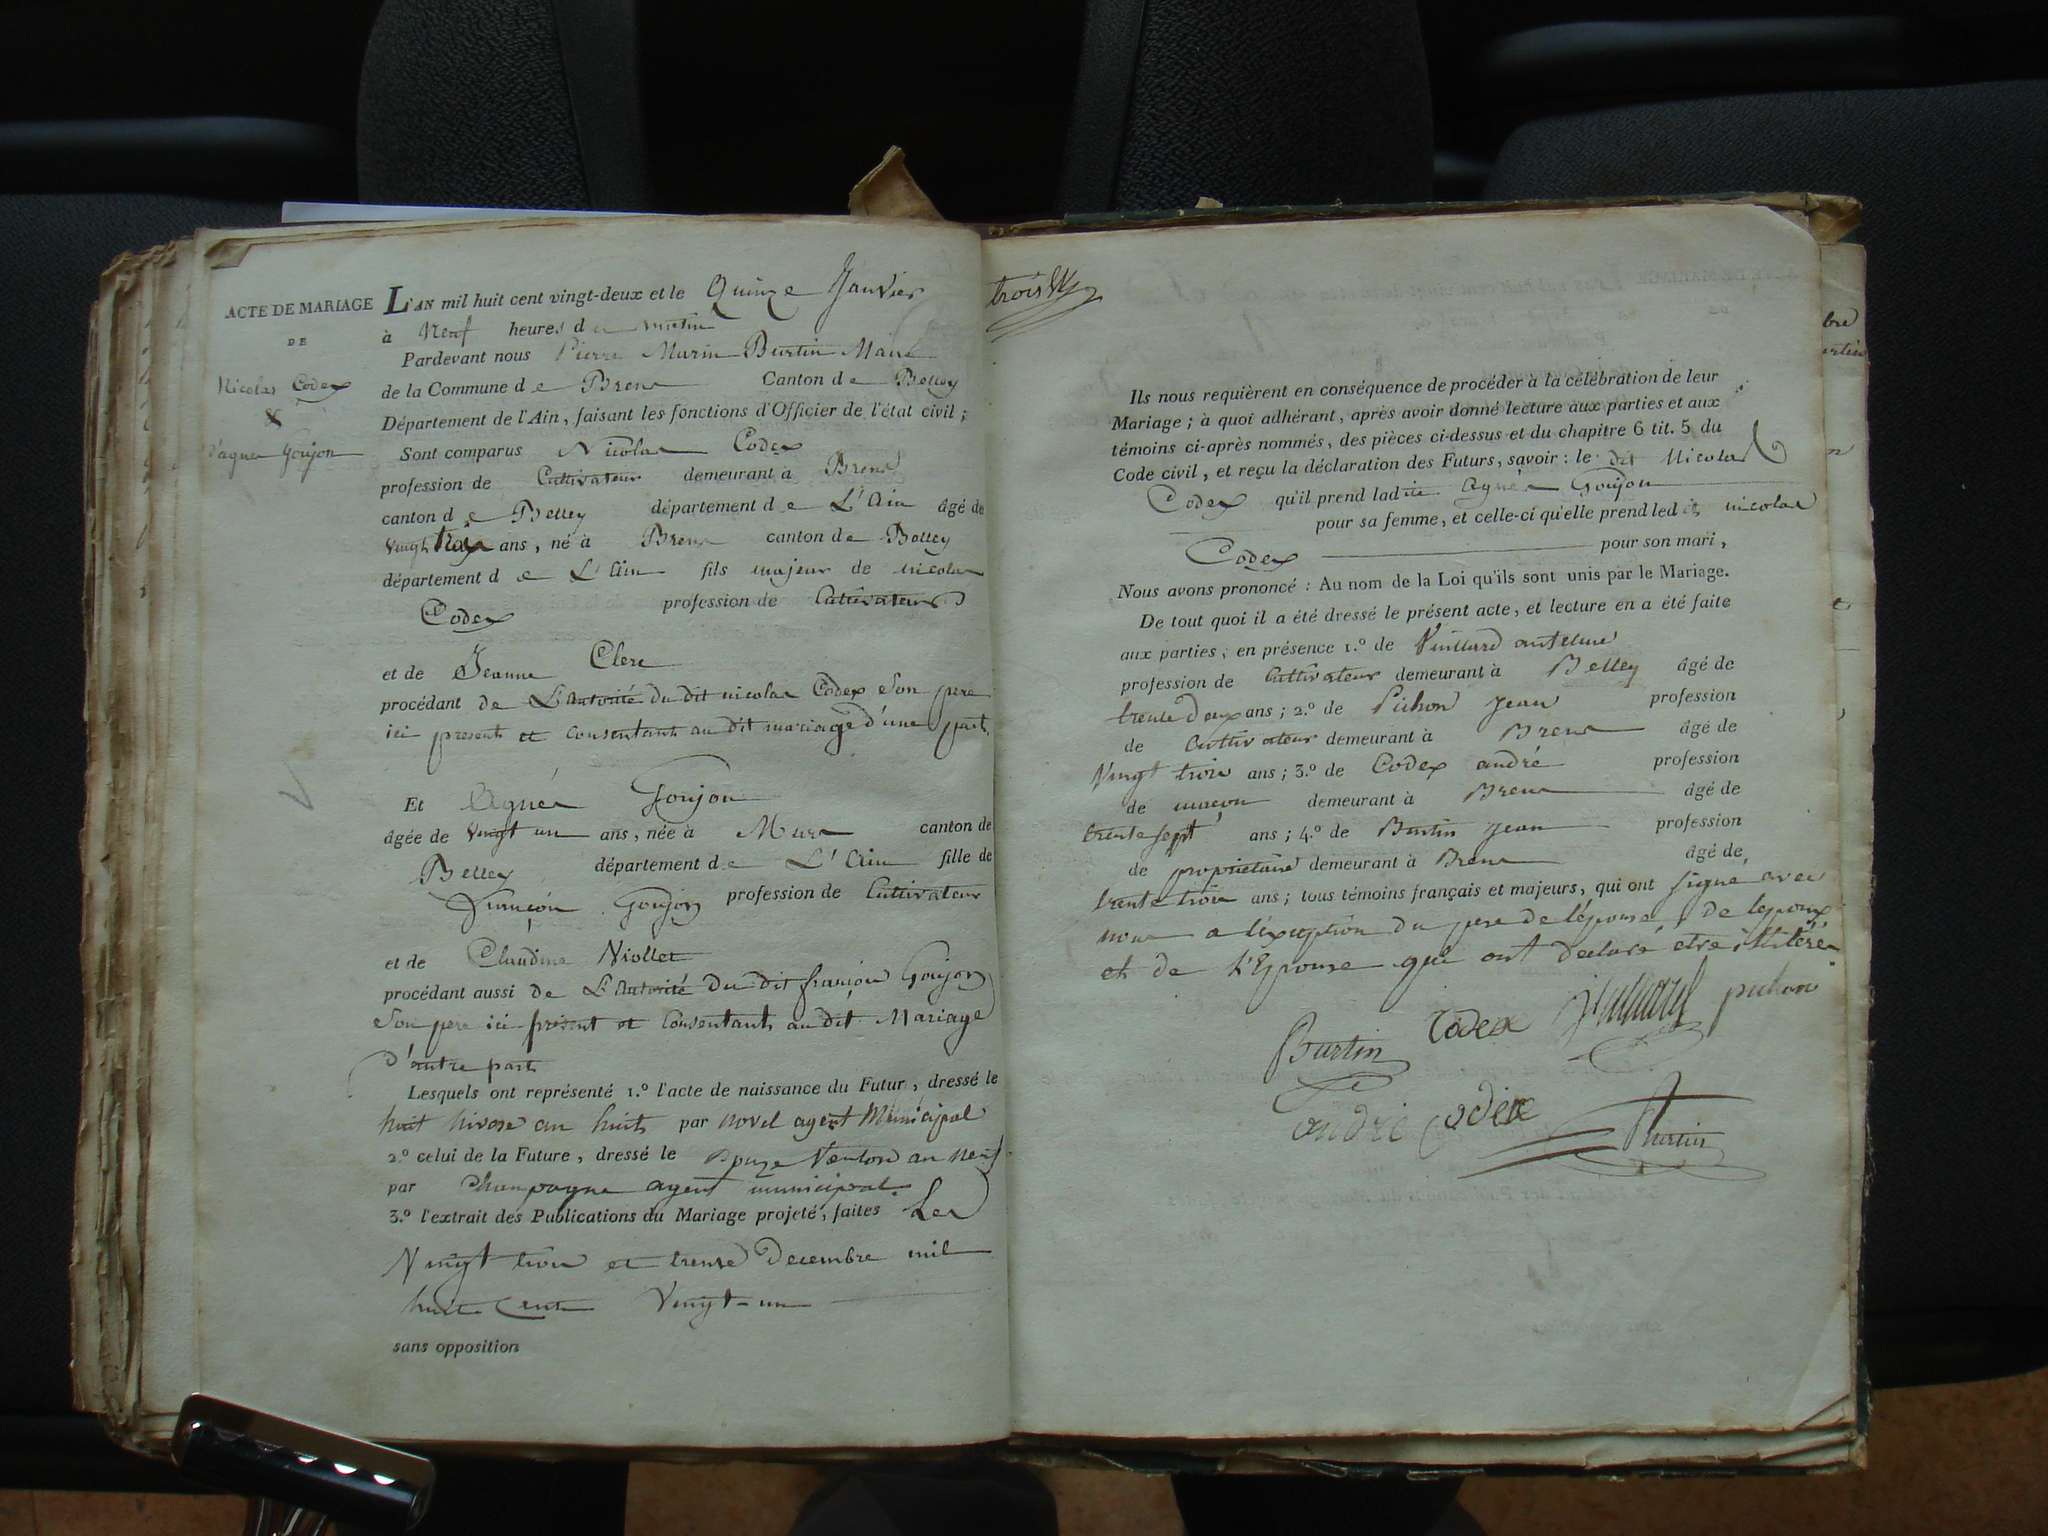 ACTE DE MARIAGE
DE
Nicolas Codex
&
d'agnes Goujon
L'AN mil huit cent vingt-deux et le Quinze Janvier
à Neuf heures du matin
Pardevant nous Pierre Marin Burtin Maire
de la Commune de Brens Canton de Belley
Département de l'Ain, faisant les fonctions d'Officier de l'état civil;
Sont comparus Nicolas Codex
profession de Cultivateur demeurant à Brens
canton de Belley département de L'Ain âgé de
vingt trois ans, né à Brens canton de Belley
département de L'Ain fils majeur de nicolas
Codex profession de Cultivateur
et de Jeanne Clerc
procédant de L'Autorité du dit nicolas Codex son pere
ici present et consentant au dit mariage d'une part.
Et Agnés Goujon
âgée de vingt un ans, née à Murs canton de
Belley département de L'Ain fille de
françois Goujon profession de Cultivateur
et de Claudine Niollet
procédant aussi de L'Autorité du dit françois Goujon
son pere ici présent et consentant au dit Mariage
d'autre part
Lesquels ont représenté 1.º l'acte de naissance du Futur, dressé le
huit nivose an huit par novel agent Municipal
2.º celui de la Future, dressé le Douze Ventose an neuf
par Champagne agent municipal.
3.º l'extrait des Publications du Mariage projeté, faites Les
Vingt trois et trente Decembre mil
huit cent Vingt-un
sans opposition
trois
Ils nous requièrent en conséquence de procéder à la célébration de leur
Mariage; à quoi adhérant, après avoir donné lecture aux parties et aux
témoins ci-après nommés, des pièces ci-dessus et du chapitre 6 tit. 5 du
Code civil, et reçu la déclaration des Futurs, savoir: le dit Nicolas
Codex qu'il prend ladite Agnés Goujon
pour sa femme, et celle-ci qu'elle prend ledit nicolas
Codex pour son mari,
Nous avons prononcé: Au nom de la Loi qu'ils sont unis par le Mariage.
De tout quoi il a été dressé le présent acte, et lecture en a été faite
aux parties, en présence 1.º de Vuillard antelme
profession de Cultivateur demeurant à Belley âgé de
trente Deux ans; 2.º de Pichon Jean profession
de Cultivateur demeurant à Brens âgé de
Vingt trois ans; 3.º de Codex andré profession
de maçon demeurant à Brens âgé de
trente sept ans; 4.º de Burtin Jean profession
de propriétaire demeurant à Brens âgé de
trente trois ans; tous témoins français et majeurs, qui ont signé avec
nous a l'exception du pere de l'épouse, de lepoux
et de l'Epouse qui ont declaré etre illitérés
Burtin Codex Vuillard pichon
andré codex Burtin